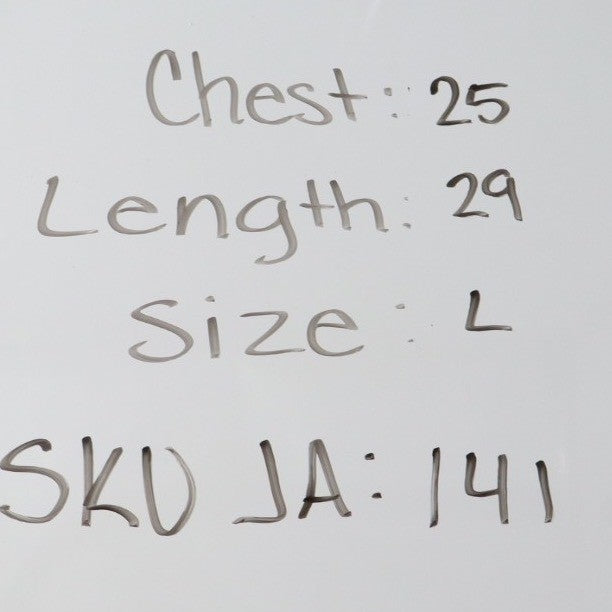 Chest: 25
Length: 29
Size: L
SKU JA: 141